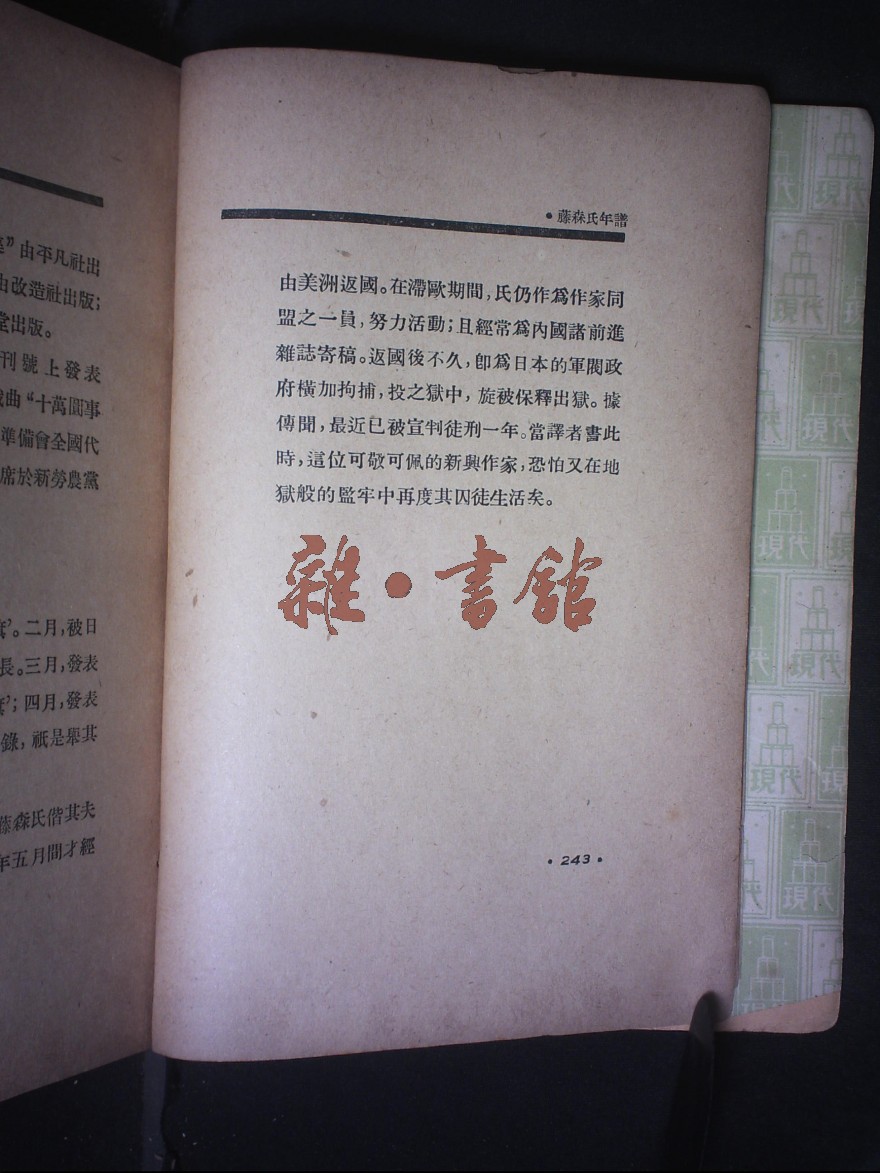 座”由平凡社出
由改造社出版;
堂出版。
刊號上發表
戲曲“十萬圓事
準備會全國代
席於新勞農黨
。二月,被日
長。三月,發表
;四月,發表
錄,祇是舉其
藤森氏偕其夫
年五月間才經
• 藤森氏年譜
由美洲返國。在滯歐期間,氏仍作爲作家同
盟之一員,努力活動;且經常爲內國諸前進
雜誌寄稿。返國後不久,卽爲日本的軍閥政
府橫加拘捕,投之獄中,旋被保釋出獄。據
傳聞,最近已被宣判徒刑一年。當譯者書此
時,這位可敬可佩的新興作家,恐怕又在地
獄般的監牢中再度其囚徒生活矣。
雜•書館
• 243 •
現代
現代
現代
現代
現代
現代